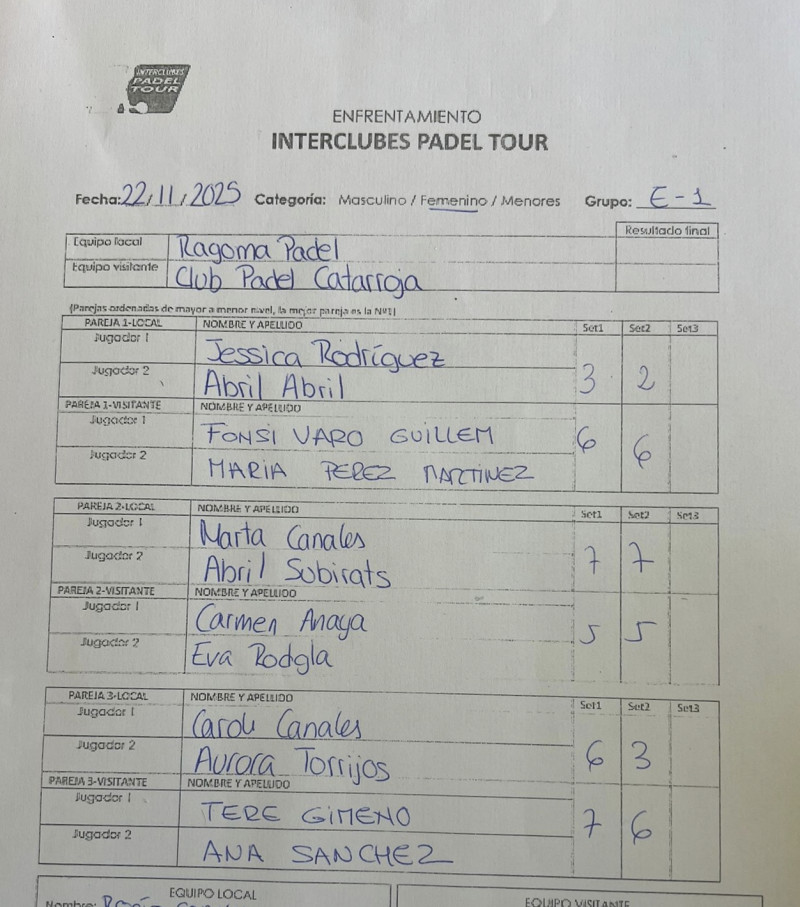 INTERCLUBES
PADEL
TOUR
ENFRENTAMIENTO
INTERCLUBES PADEL TOUR
Fecha: 22/11/2025 Categoría: Masculino / Femenino / Menores Grupo: E-1
Resultado final
Equipo local Ragoma Padel
Equipo visitante Club Padel Catarroja
(Parejas ordenadas de mayor a menor nivel, la mejor pareja es la Nº1)
PAREJA 1-LOCAL NOMBRE Y APELLIDO Set1 Set2 Set3
Jugador 1 Jessica Rodríguez
Jugador 2 Abril Abril 3 2
PAREJA 1-VISITANTE NOMBRE Y APELLIDO
Jugador 1 FONSI VARO GUILLEM 6 6
Jugador 2 MARIA PEREZ MARTINEZ
PAREJA 2-LOCAL NOMBRE Y APELLIDO Set1 Set2 Set3
Jugador 1 Marta Canales
Jugador 2 Abril Subirats 7 7
PAREJA 2-VISITANTE NOMBRE Y APELLIDO
Jugador 1 Carmen Anaya 5 5
Jugador 2 Eva Rodgla
PAREJA 3-LOCAL NOMBRE Y APELLIDO Set1 Set2 Set3
Jugador 1 Canales
Jugador 2 Aurora Torrijos 6 3
PAREJA 3-VISITANTE NOMBRE Y APELLIDO
Jugador 1 TERE GIMENO 7 6
Jugador 2 ANA SANCHEZ
EQUIPO LOCAL EQUIPO VISITANTE
Nombre: